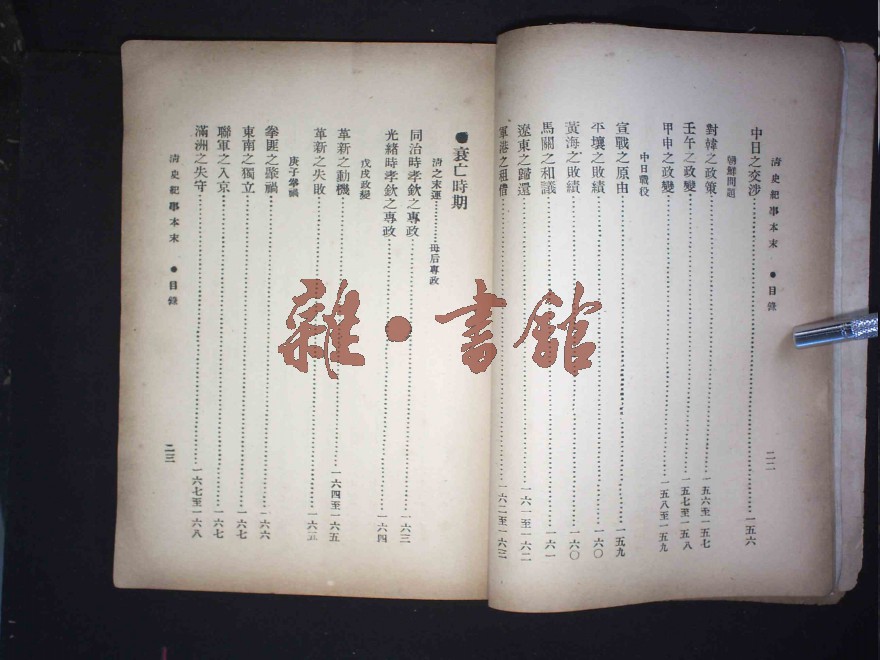 清史紀事本末 ●目錄
二二
中日之交涉………一五六
朝鮮問題
對韓之政策………一五六至一五七
壬午之政變………一五七至一五八
甲申之政變………一五八至一五九
中日戰役
宣戰之原由………一五九
平壤之敗績………一六〇
黃海之敗績………一六〇
馬關之和議………一六一
遼東之歸還………一六一至一六二
軍港之租借………一六二至一六三
●衰亡時期
清之末運………母后專政
同治時孝欽之專政………一六三
光緒時孝欽之專政………一六四
戊戌政變
革新之動機………一六四至一六五
革新之失敗………一六五
庚子拳禍
拳匪之釀禍………一六六
東南之獨立………一六七
聯軍之入京………一六七
滿洲之失守………一六七至一六八
清史紀事本末 ●目錄
二三
雜·書館